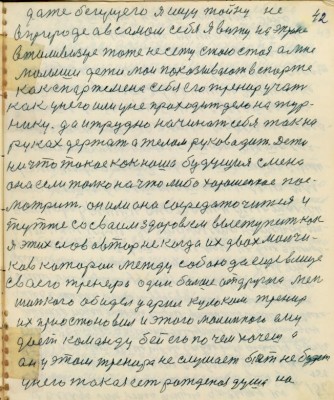 42
даже бегущего я ищу тойну не
в природе а в самом себя я вижу на экране
в тиливизуре тоже не сету стою стоя а мне
малыши дети мои показивают в спорте
как спортсмена себя его тренир учат
как у него или уне приходит дело на тур-
нику. да и трудно начинать себя так на
руках держат а телом руководит. Дети
ничто такое как наша будущия смена
она если толко на что либо харашенкое пос-
мотрит. он или она сасредаточится и
тут те со сваим здоровем выступит как
я этих слов автор не когда их двоих малчи-
ков катории между собою да еще в лице
своего тренера один болше а другой мен
шинкого обидел ударил кулаком тренир
их приостоновил и этого малинкого ему
дает команду бей его по чем хочеш а
он у этом тренира не слушает бьет не будет
у него такая ест рожденая душа на